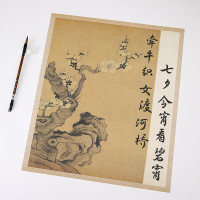 七夕今宵看碧霄
牵牛织女渡河桥